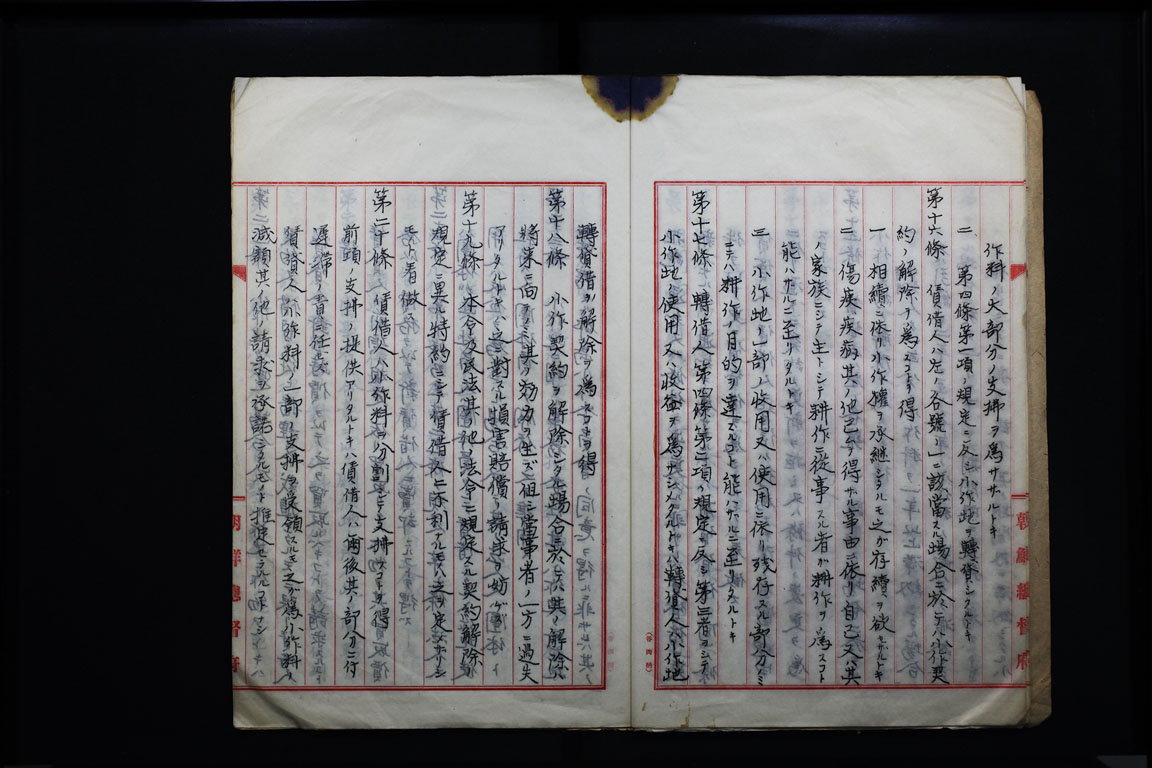 作料ノ大部分ノ支拂ヲ爲サザルトキ
二 第四條第一項ノ規定ニ反シ小作地ヲ轉貸シタルトキ
第十六條 賃借人ハ左ノ各號ノ一ニ該當スル場合ニ於テハ小作契
約ノ解除ヲ爲スコトヲ得
一 相續ニ依リ小作權ヲ承継シタルモ之ガ存續ヲ欲セザルトキ
二 傷疾疾病其ノ他已ムヲ得ザル事由ニ依リ自己又ハ其
ノ家族ニシテ主トシテ耕作ニ從事スル者ガ耕作ヲ爲スコト
能ハザルニ至リタルトキ
三 小作地ノ一部ノ收用又ハ使用ニ依リ残存スル部分ノミ
ニテハ耕作ノ目的ヲ達スルコト能ハザルニ至リタルトキ
第十七條 轉借人第四條第二項ノ規定ニ反シ第三者ヲシテ
小作地ノ使用又ハ收益ヲ爲サシメタルトキハ轉貸人ハ小作地
轉貸借ノ解除ヲ爲スコトヲ得
第十八條 小作契約ヲ解除シタル場合ニ於テハ其ノ解除ハ
將来ニ向テノミ其ノ効力ヲ生ズ但シ當事者ノ一方ニ過失
アリタルトキハ之ニ對スル損害賠償ノ請求ヲ妨ゲズ
第十九條 本令及民法其ノ他ノ法令ニ規定スル契約解除
規定ニ異ル特約ニシテ賃借人ニ不利ナルモノハ之ヲ定メザリシ
モノト看做ス
第二十條 賃借人ハ小作料ヲ分割シテ支拂フコトヲ得
前項ノ支拂ノ提供アリタルトキハ賃借人ハ爾後其ノ部分ニ付
遲滞ノ責ニ任ゼズ
賃貸人小作料ノ一部ノ支拂ヲ受領スルモ之ガ爲小作料ノ
減額其ノ他ノ請求ヲ承諾シタルモノト推定セラルルコトナシ
朝鮮總督府
朝鮮總督府